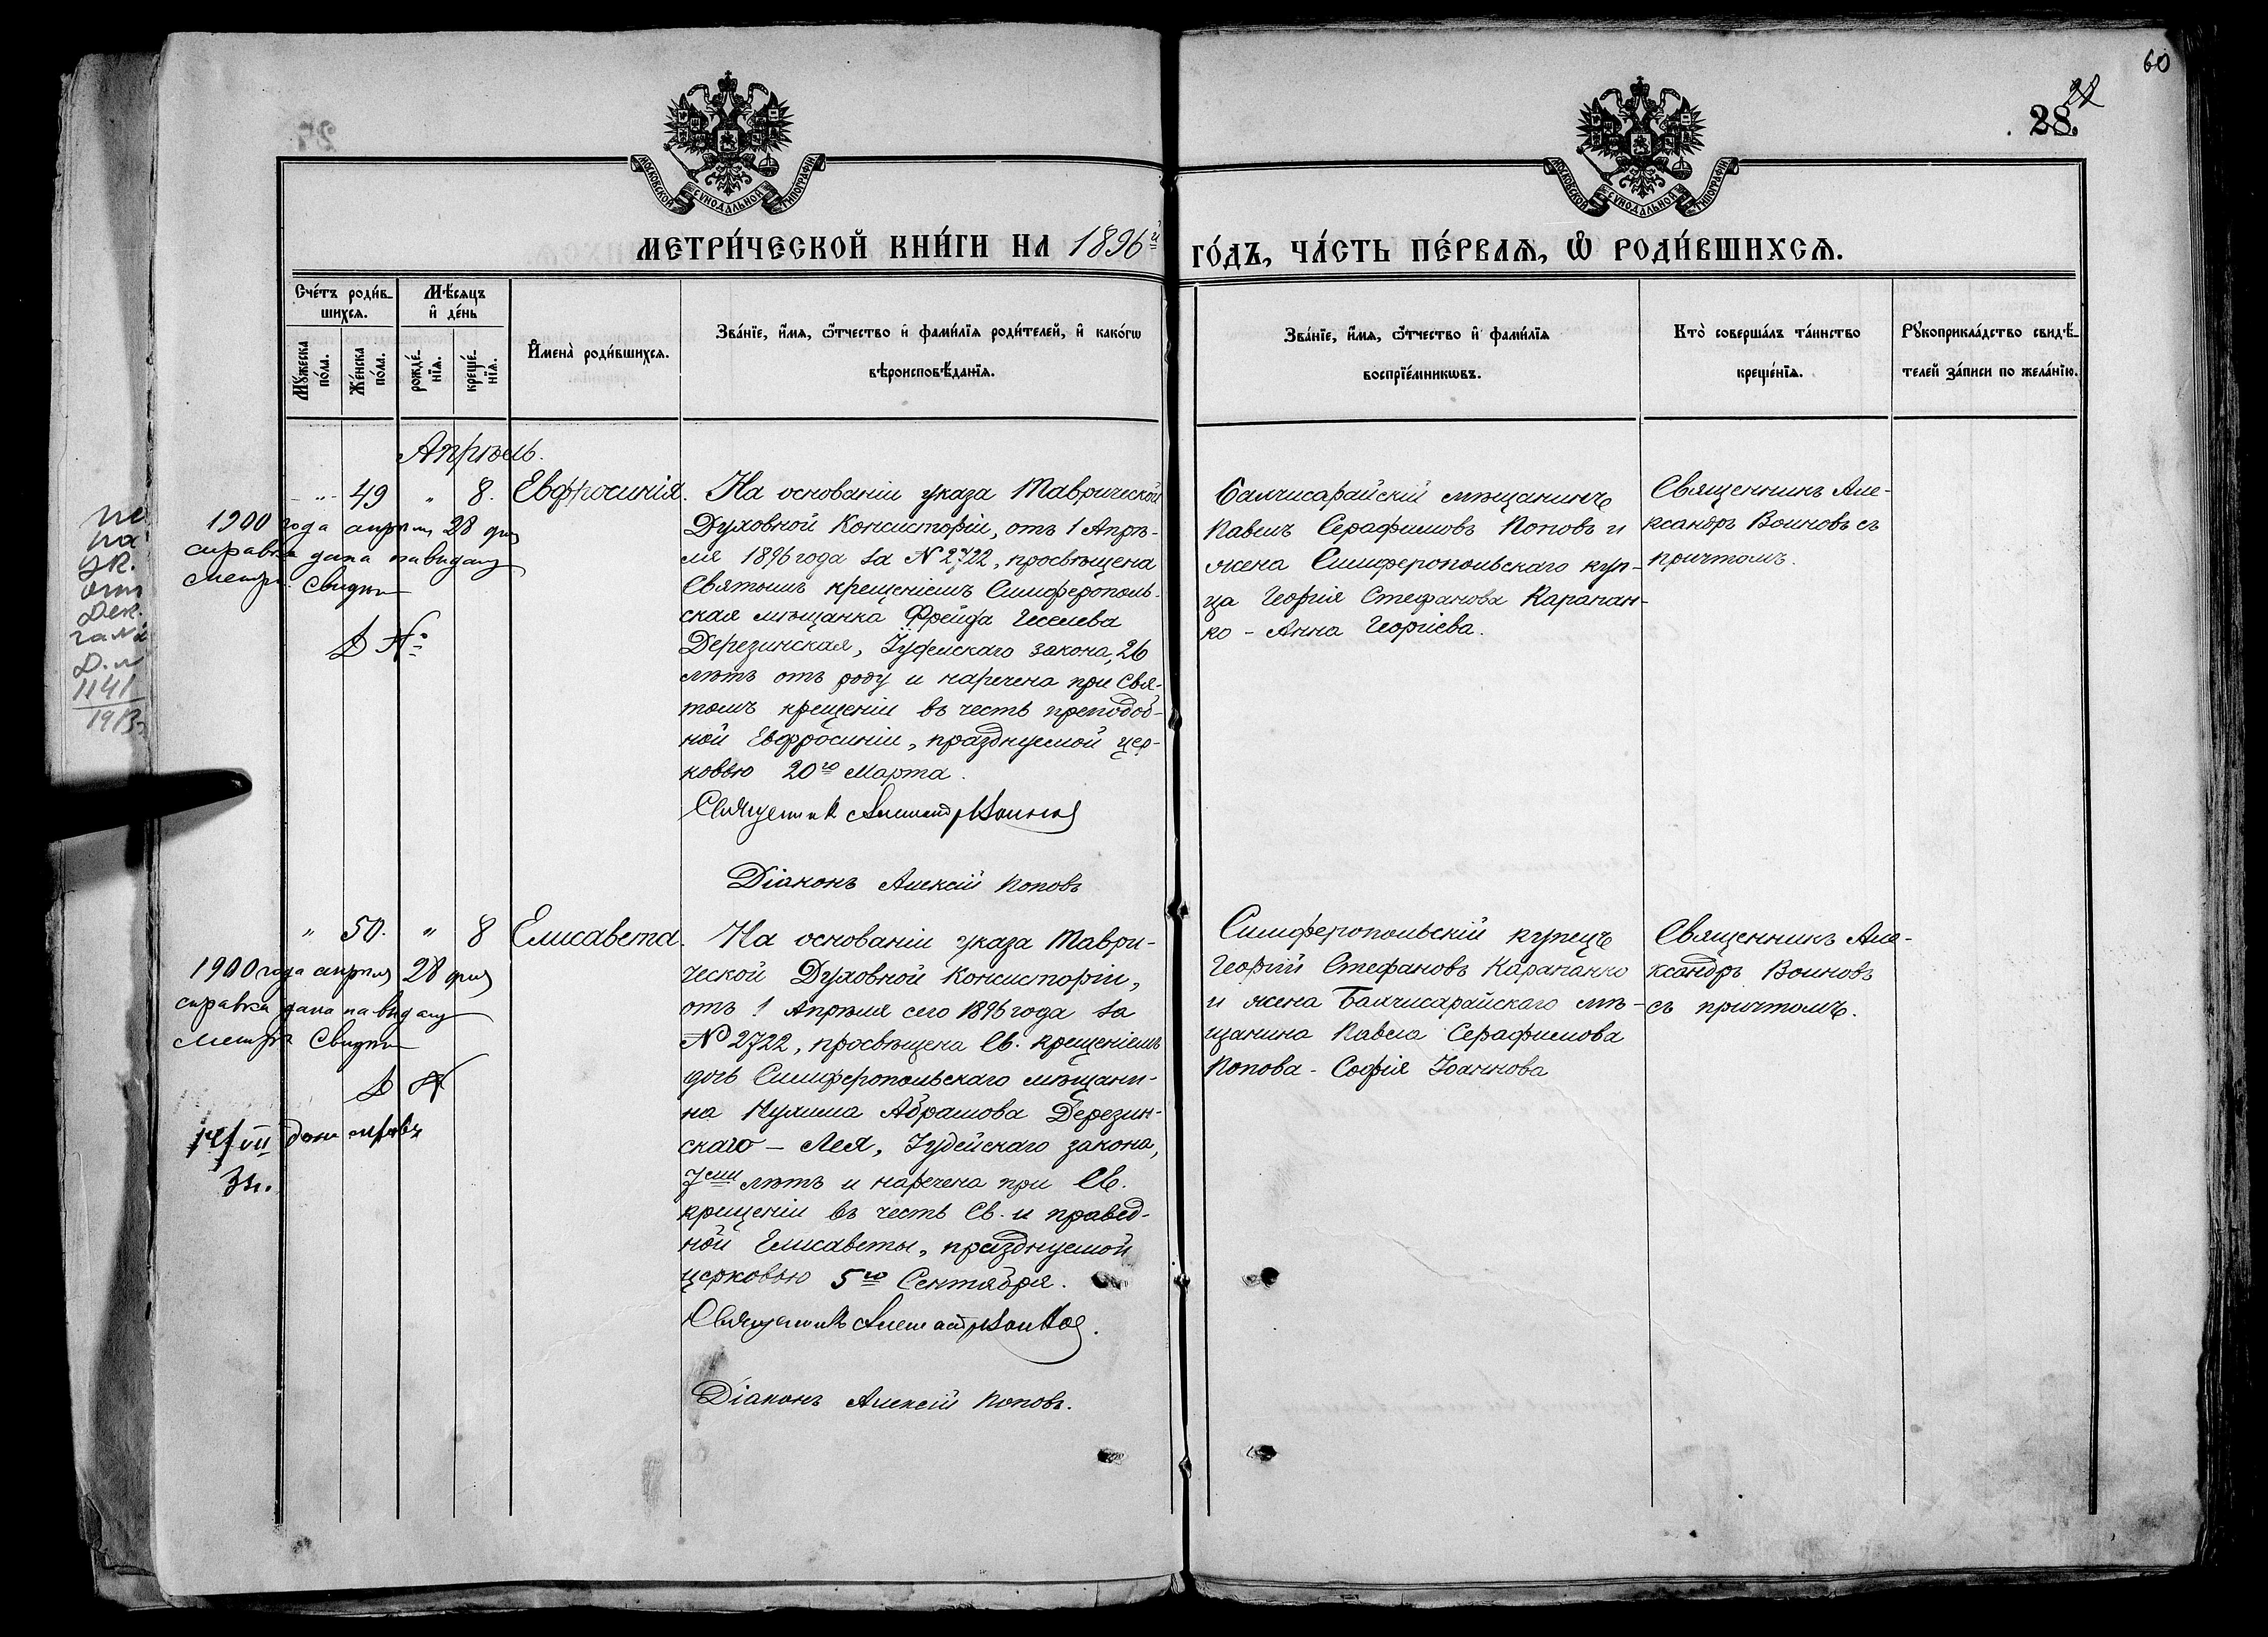 60
28.
МОСКОВСКОЙ СѴНОДАЛЬНОЙ ТИПОГРАФІИ
МОСКОВСКОЙ СѴНОДАЛЬНОЙ ТИПОГРАФІИ
МЕТРИ́ЧЕСКОЙ КНИ́ГИ НА 1896й ГО́ДЪ, ЧА́СТЬ ПЕ́РВАѦ, Ѡ҆ РОДИ́ВШИХСѦ.
Сче́тъ роди́в-
шихсѧ.
Мѣ́сѧцъ
и҆ де́нь
Мꙋ́жеска
по́ла.
Же́нска
по́ла.
рожде́-
нїѧ.
креще́-
нїѧ.
И҆мена̀ роди́вшихсѧ.
Зва́нїе, и҆́мѧ, ѻ҆́тчество и҆ фами́лїѧ роди́телей, и҆ како́гѡ
вѣроисповѣ́данїѧ.
Зва́нїе, и҆́мѧ, ѻ҆́тчество и҆ фами́лїѧ
воспрїе́мникѡвъ.
Кто̀ соверша́лъ та́инство
креще́нїѧ.
Рꙋкоприкла́дство свидѣ́-
телей за́писи по жела́нїю.
Апрѣль.
" 49 " 8. Евфросинія.
На основаніи указа Таврической
Духовной Консисторіи, отъ 1 Апрѣ-
ля 1896 года за N 2722, просвѣщена
Святымъ крещеніемъ Симферополь-
ская мѣщанка Фрейда Геселева
Дерезинская, Іудейскаго закона, 26
лѣтъ отъ роду и наречена при Свя-
томъ крещеніи въ честь преподоб-
ной Евфросиніи, празднуемой цер-
ковью 20го Марта.
Священникъ Александръ Воиновъ
Діаконъ Алексій Поповъ
Бахчисарайскій мѣщанинъ
Павелъ Серафимовъ Поповъ и
жена Симферопольскаго куп-
ца Георгія Стефанова Карапан-
ко - Анна Георгіева.
Священникъ Але-
ксандръ Воиновъ съ
причтомъ.
1900 года апрѣля 28 дня
справка дана на выдачу
метри. Свидѣт
на
ук.
Дек.
1141
1913
" 50. " 8 Елисавета.
На основаніи указа Таври-
ческой Духовной Консисторіи,
отъ 1 Апрѣля сего 1896 года за
N 2722, просвѣщена Св. крещеніемъ
дочь Симферопольскаго мѣщани-
на Нухима Абрамова Дерезин-
скаго - Лея, Іудейскаго закона,
7ми лѣтъ и наречена при Св.
крещеніи въ честь Св. и правед-
ной Елисаветы, празднуемой
церковью 5го Сентября.
Священникъ Александръ Воиновъ.
Діаконъ Алексій Поповъ.
Симферопольскій купецъ
Георгій Стефановъ Карапанко
и жена Бахчисарайскаго мѣ-
щанина Павла Серафимова
Попова - Софія Іоаннова
Священникъ Але-
ксандръ Воиновъ
съ причтомъ.
1900 года апрѣля 28 дня
справка дана на выдачу
метри Свидѣт